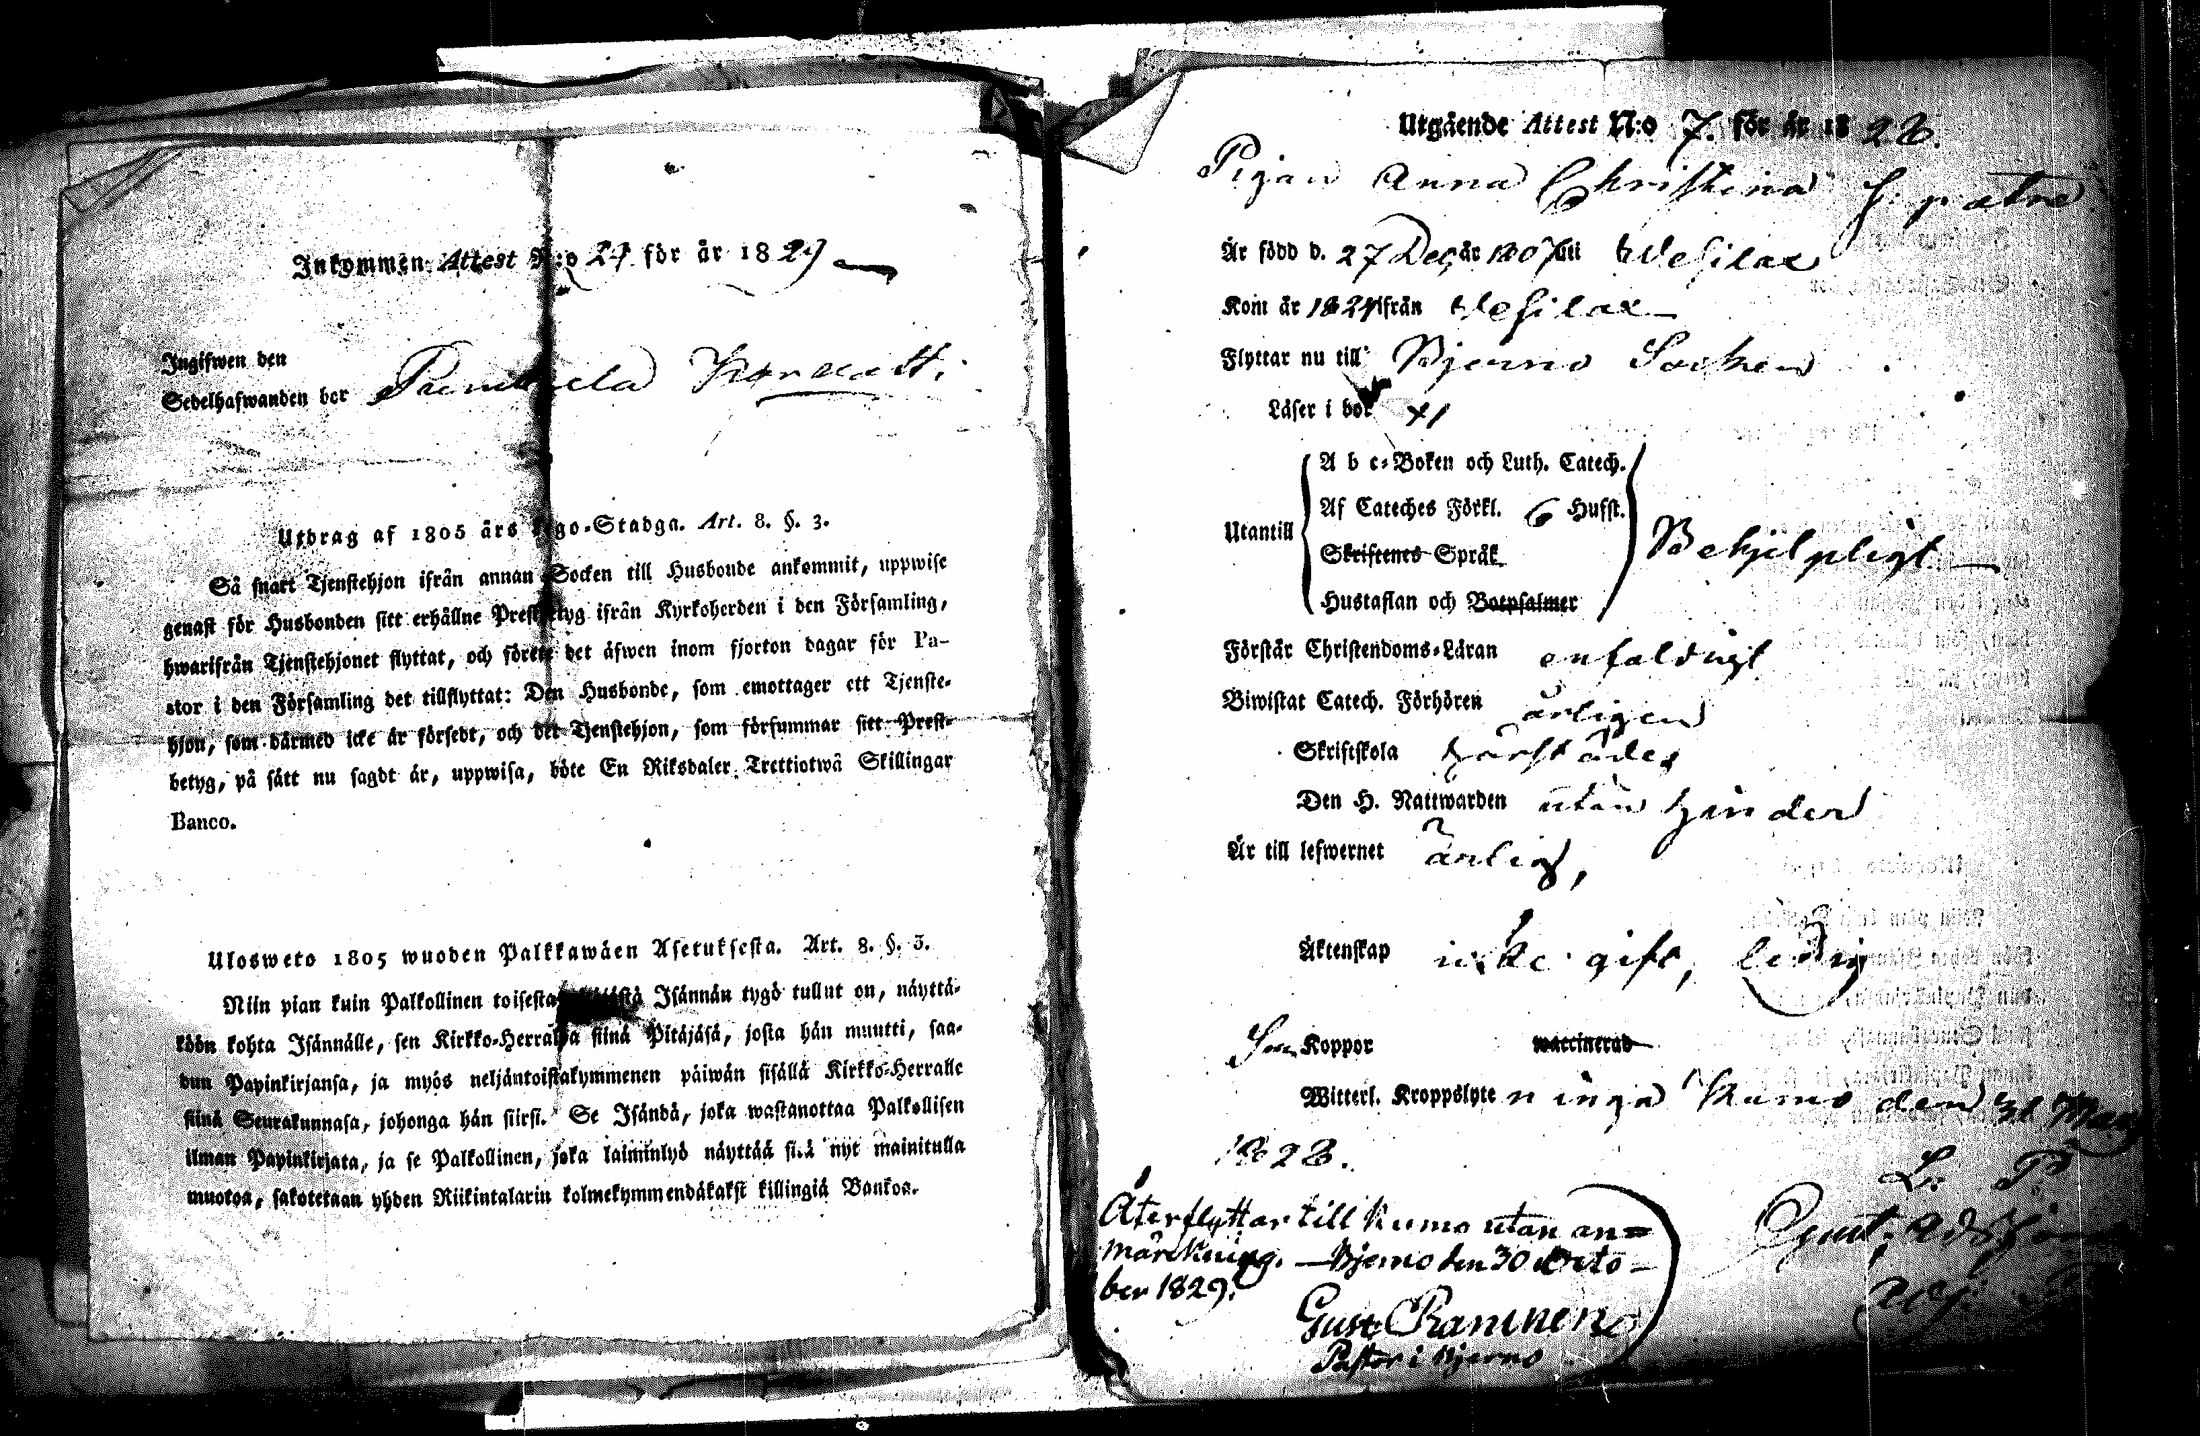 Inkommen Attest N:o 24 för år 1829
Ingifwen den
Sedelhafwanden bor
Utdrag af 1805 års Lego-Stadga. Art. 8. §. 3.
Så snart Tjenstehjon ifrån annan Socken till Husbonde ankommit, uppwise
genast för Husbonden sitt erhållne Prestbetyg ifrån Kyrkoherden i den Församling,
hwarifrån Tjenstehjonet flyttat, och förete det äfwen inom fjorton dagar för Pa-
stor i den Församling det tillflyttat: Den Husbonde, som emottager ett Tjenste-
hjon, som därmed icke är försedt, och det Tjenstehjon, som försummar sitt Prest-
betyg, på sätt nu sagdt är, uppwisa, böte En Riksdaler Trettiotwå Skillingar
Banco.
Ulosweto 1805 wuoden Palkkawäen Asetuksesta. Art. 8. §. 3.
Niin pian kuin Palkollinen toisesta Isännän tygö tullut on, näyttä-
köön kohta Isännälle, sen Kirkko-Herralda siinä Pitäjäsä, josta hän muutti, saa-
dun Papinkirjansa, ja myös neljäntoistakymmenen päiwän sisällä Kirkko-Herralle
siinä Seurakunnasa, johonga hän siirsi. Se Isändä, joka wastanottaa Palkollisen
ilman Papinkirjata, ja se Palkollinen, joka laiminlyö näyttää sitä nyt mainitulla
muotoa, sakotetaan yhden Riikintalarin kolmekymmendäkaksi killingiä Bankoa.
Utgående Attest N:o 7. för år 1828.
Pigan Anna Christina
Är född d. 27 Dec. år 1807 uti Wesilax
Kom år 1824 ifrån Wesilax
Flyttar nu till Bjerno Socken
Läser i bok
A b c-Boken och Luth. Catech.
Af Cateches Förkl. 6 Hufst.
Utantill
Skriftenes Språk
Behjelpligt
Hustaflan och Botpsalmer
Förstår Christendoms-Läran enfaldigt
Biwistat Catech. Förhören årligen
Skriftskola härstädes
Den H. Nattwarden utan hinder
Är till lefwernet ärlig,
Äktenskap icke gift, ledig
Koppor waccinerad
Witterl. Kroppslyte n inga Kumo den 31 May
1828.
L. P.
Återflyttar till Kumo utan an=
märkning. — Bjerno den 30 Octo-
ber 1829.
Gust. Rammen
Pastor i Bjerno